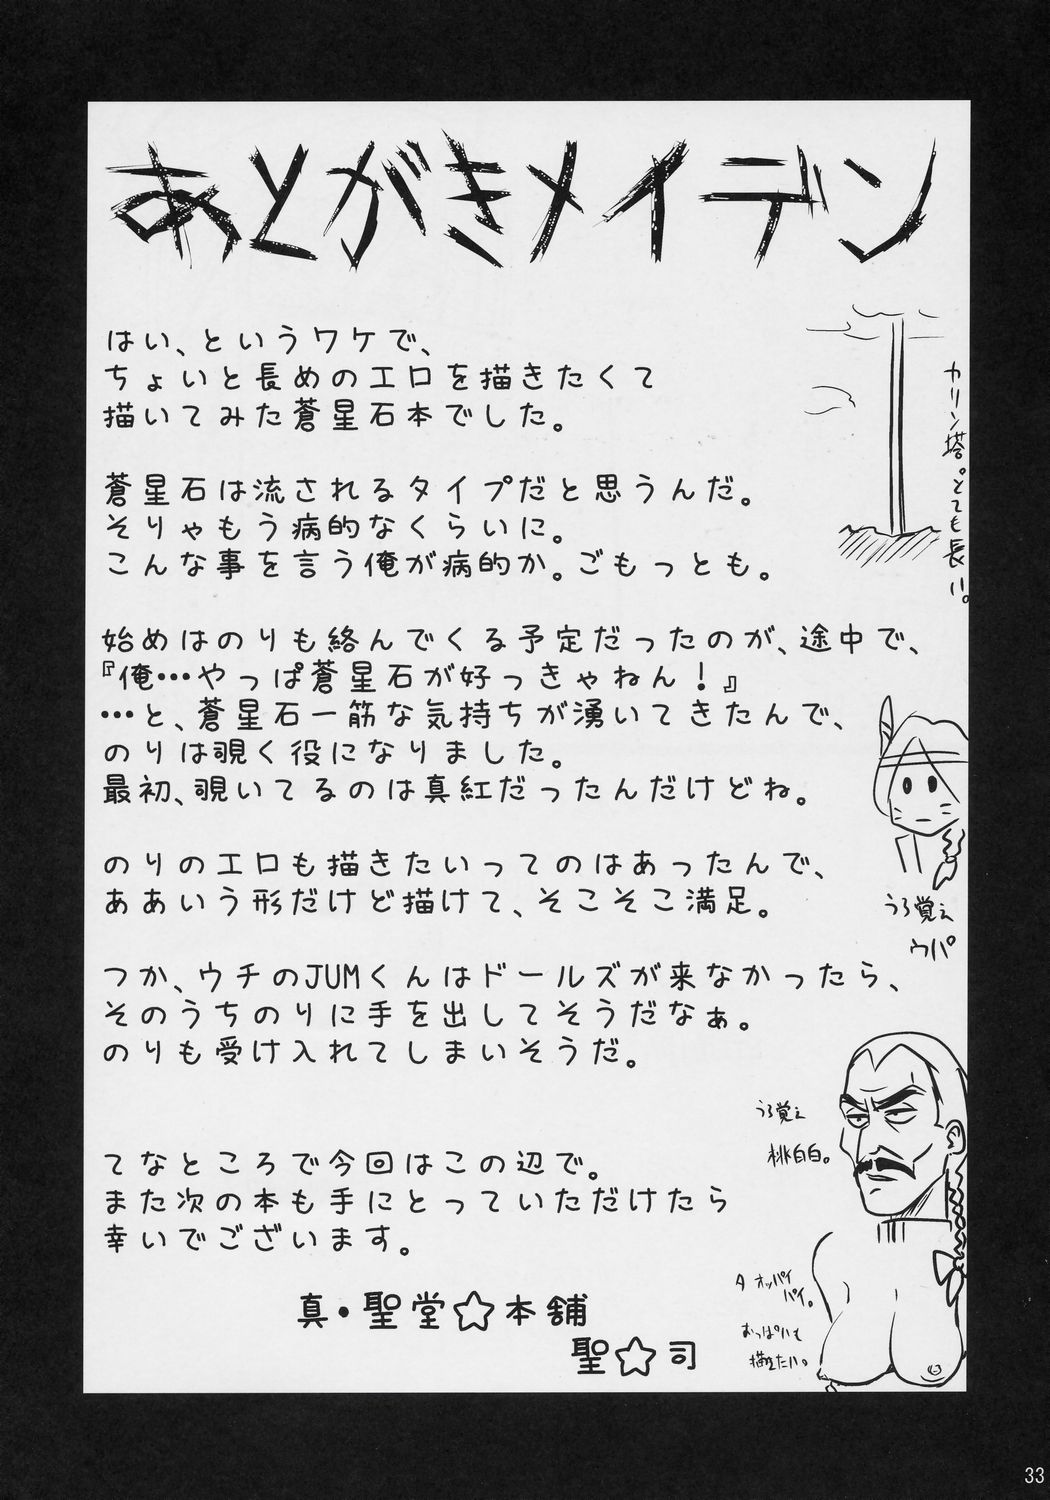 あとがきメイデン
はい、というワケで、
ちょいと長めのエロを描きたくて
描いてみた蒼星石本でした。
蒼星石は流されるタイプだと思うんだ。
そりゃもう病的なくらいに。
こんな事を言う俺が病的か。ごもっとも。
始めはのりも絡んでくる予定だったのが、途中で、
『俺…やっぱ蒼星石が好っきゃねん！』
…と、蒼星石一筋な気持ちが湧いてきたんで、
のりは覗く役になりました。
最初、覗いてるのは真紅だったんだけどね。
のりのエロも描きたいってのはあったんで、
ああいう形だけど描けて、そこそこ満足。
つか、ウチのJUMくんはドールズが来なかったら、
そのうちのりに手を出してそうだなぁ。
のりも受け入れてしまいそうだ。
てなところで今回はこの辺で。
また次の本も手にとっていただけたら
幸いでございます。
真・聖堂☆本舗
聖☆司
カリン塔。とても長い。
うろ覚え
ウパ
うろ覚え
桃白白。
タオッパイ
パイ。
おっぱいも
描きたい。
33